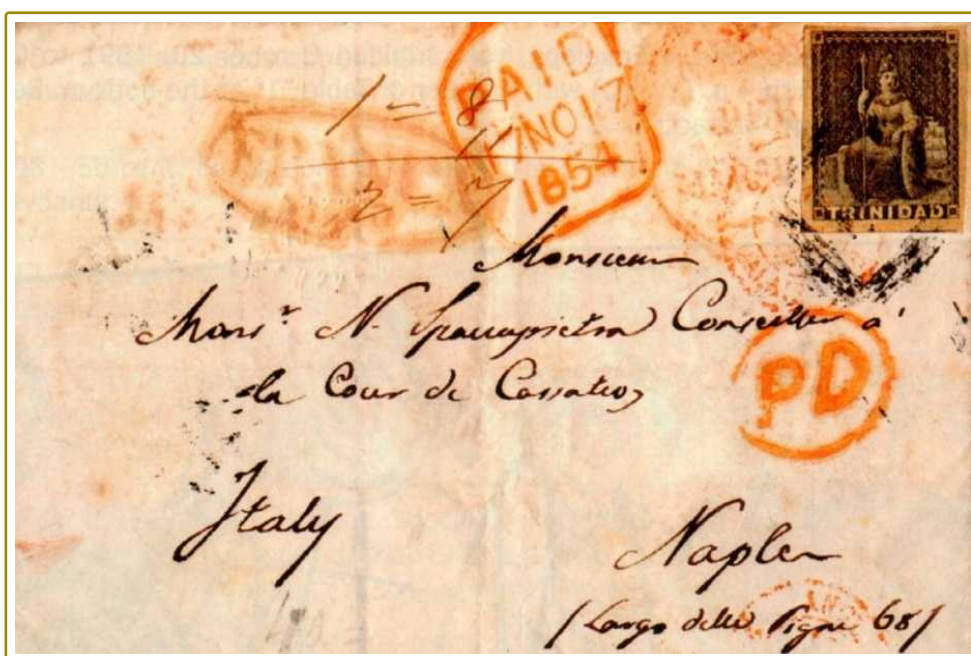 PAID
17 NO 17
1854
1 = 8
11
2 = 7
TRINIDAD
Monsieur
Monsr. N. Spaccapietra Conseiller à
la Cour de Cassation
PD
Italy
Naples
/ Largo delle Pigne 68 /